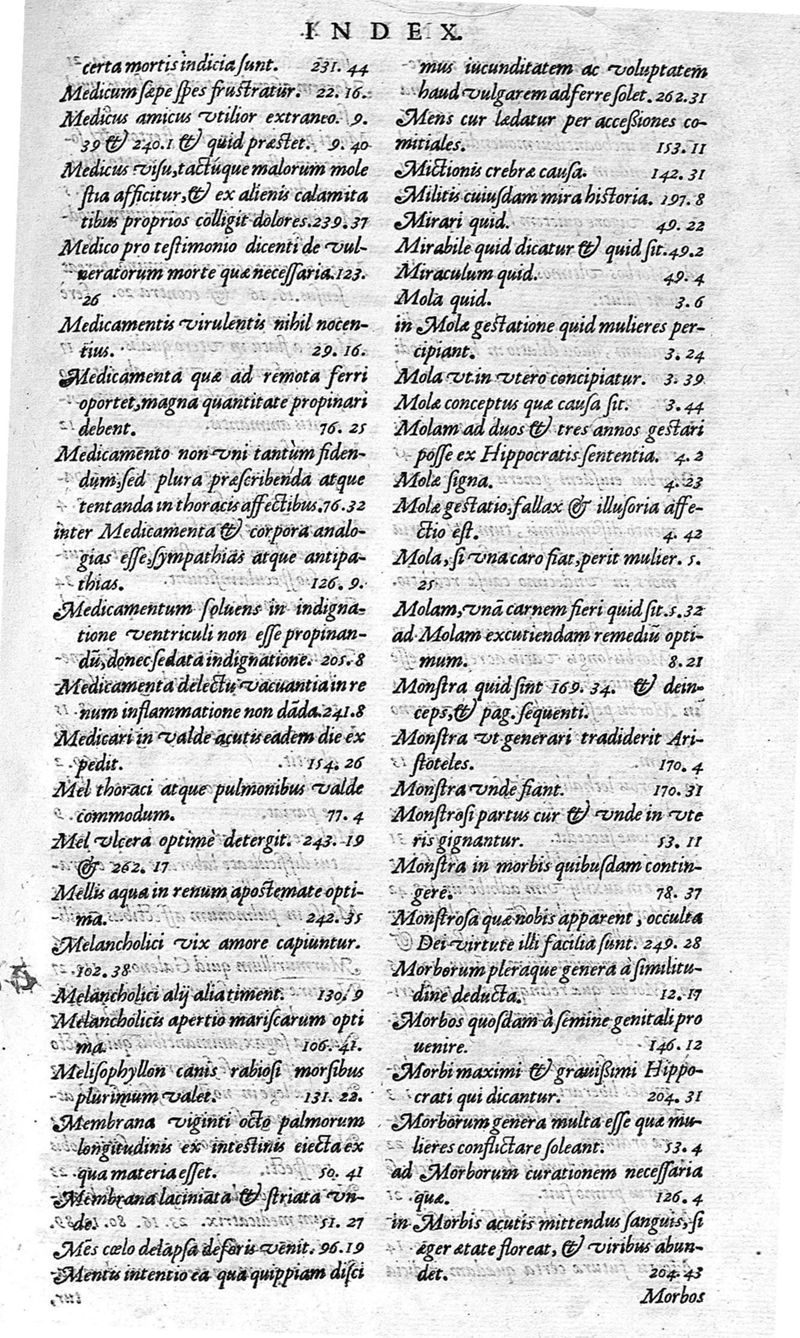 INDEX.
certa mortis indicia sunt. 231. 44
Medicum sæpe spes frustratur. 22. 16.
Medicus amicus vtilior extraneo. 9.
39 & 240.1 & quid præstet. 9. 40
Medicus visu, tactúque malorum mole
stia afficitur, & ex alienis calamita
tibus proprios colligit dolores. 239. 37
Medico pro testimonio dicenti de vul-
neratorum morte quæ necessaria. 123.
26
Medicamentis virulentis nihil nocen-
tius. 29. 16.
Medicamenta quæ ad remota ferri
oportet, magna quantitate propinari
debent. 76. 25
Medicamento non vni tantùm fiden-
dum, sed plura præscribenda atque
tentanda in thoracis affectibus. 76. 32
inter Medicamenta & corpora analo-
gias esse, sympathias atque antipa-
thias. 126. 9.
Medicamentum soluens in indigna-
tione ventriculi non esse propinan-
dū, donec sedata indignatione. 205. 8
Medicamenta delectu vacuantia in re
num inflammatione non dāda. 241. 8
Medicari in valde acutis eadem die ex
pedit. 154. 26
Mel thoraci atque pulmonibus valde
commodum. 77. 4
Mel vlcera optimè detergit. 243. 19
& 262. 17
Mellis aqua in renum apostemate opti-
ma. 242. 35
Melancholici vix amore capiuntur.
102. 38
Melancholici alij alia timent. 130. 9
Melancholicis apertio mariscarum opti
ma. 106. 41.
Melisophyllon canis rabiosi morsibus
plurimum valet. 131. 22.
Membrana viginti octo palmorum
longitudinis ex intestinis eiecta ex
qua materia esset. 50. 41
Membrana laciniata & striata vn-
de. 51. 27
Mēs cœlo delapsa deforis venit. 96. 19
Mentis intentio ea qua quippiam disci
mus iucunditatem ac voluptatem
haud vulgarem adferre solet. 262. 31
Mens cur lædatur per accessiones co-
mitiales. 153. 11
Mictionis crebræ causa. 142. 31
Militis cuiusdam mira historia. 197. 8
Mirari quid. 49. 22
Mirabile quid dicatur & quid sit. 49. 2
Miraculum quid. 49. 4
Mola quid. 3. 6
in Molæ gestatione quid mulieres per-
cipiant. 3. 24
Mola vt in vtero concipiatur. 3. 39
Molæ conceptus quæ causa sit. 3. 44
Molam ad duos & tres annos gestari
posse ex Hippocratis sententia. 4. 2
Molæ signa. 4. 23
Molæ gestatio, fallax & illusoria affe-
ctio est. 4. 42
Mola, si vna caro fiat, perit mulier. 5.
25
Molam, vnā carnem fieri quid sit. 5. 32
ad Molam excutiendam remediū opti-
mum. 8. 21
Monstra quid sint 169. 34. & dein-
ceps, & pag. sequenti.
Monstra vt generari tradiderit Ari-
stoteles. 170. 4
Monstra vnde fiant. 170. 31
Monstrosi partus cur & vnde in vte
ris gignantur. 53. 11
Monstra in morbis quibusdam contin-
gere. 78. 37
Monstrosa quæ nobis apparent, occulta
Dei virtute illi facilia sunt. 249. 28
Morborum pleraque genera à similitu-
dine deducta. 12. 17
Morbos quosdam à semine genitali pro
uenire. 146. 12
Morbi maximi & grauissimi Hippo-
crati qui dicantur. 204. 31
Morborum genera multa esse quæ mu-
lieres conflictare soleant. 53. 4
ad Morborum curationem necessaria
quæ. 126. 4
in Morbis acutis mittendus sanguis, si
æger ætate floreat, & viribus abun-
det. 204. 43
Morbos